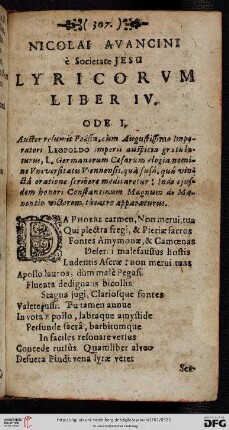 ( 307. )
NICOLAI AVANCINI
è Societate JESU
LYRICORVM
LIBER IV.
ODE I.
Auctor resumit Poësin, cum Augustissimo Impe-
ratori LEOPOLDO imperii auspicia gratula-
turus, L. Germanorum Cæsarum elogia nomi-
ne Universitatis Viennensis, quà fusâ, quà vin-
ctâ oratione scribere meditaretur: Inde ejus-
dem honori Constantinum Magnum de Ma-
xentio victorem theatro apparaturus.
DA PHOEBE carmen, Non merui, tua
Qui plectra fregi, & Pieriæ sacros
Fontes Amymonæ, & Camœnas
Deserui malefaustus hostis
Ludentis Ascræ: non merui tuas
Apollo lauros: dum male Pegasi
Fluenta dedignans bicollis
Stagna jugi, Clariosque fontes
Valere jussi. Tu tamen annue
In vota & pollo, labraque amystide
Perfunde sacrâ, barbitumque
In faciles resonare versus
Concede rursus. Quamliber alveo
Desueta Pindi vena lyræ vetet
Ses-
DFG